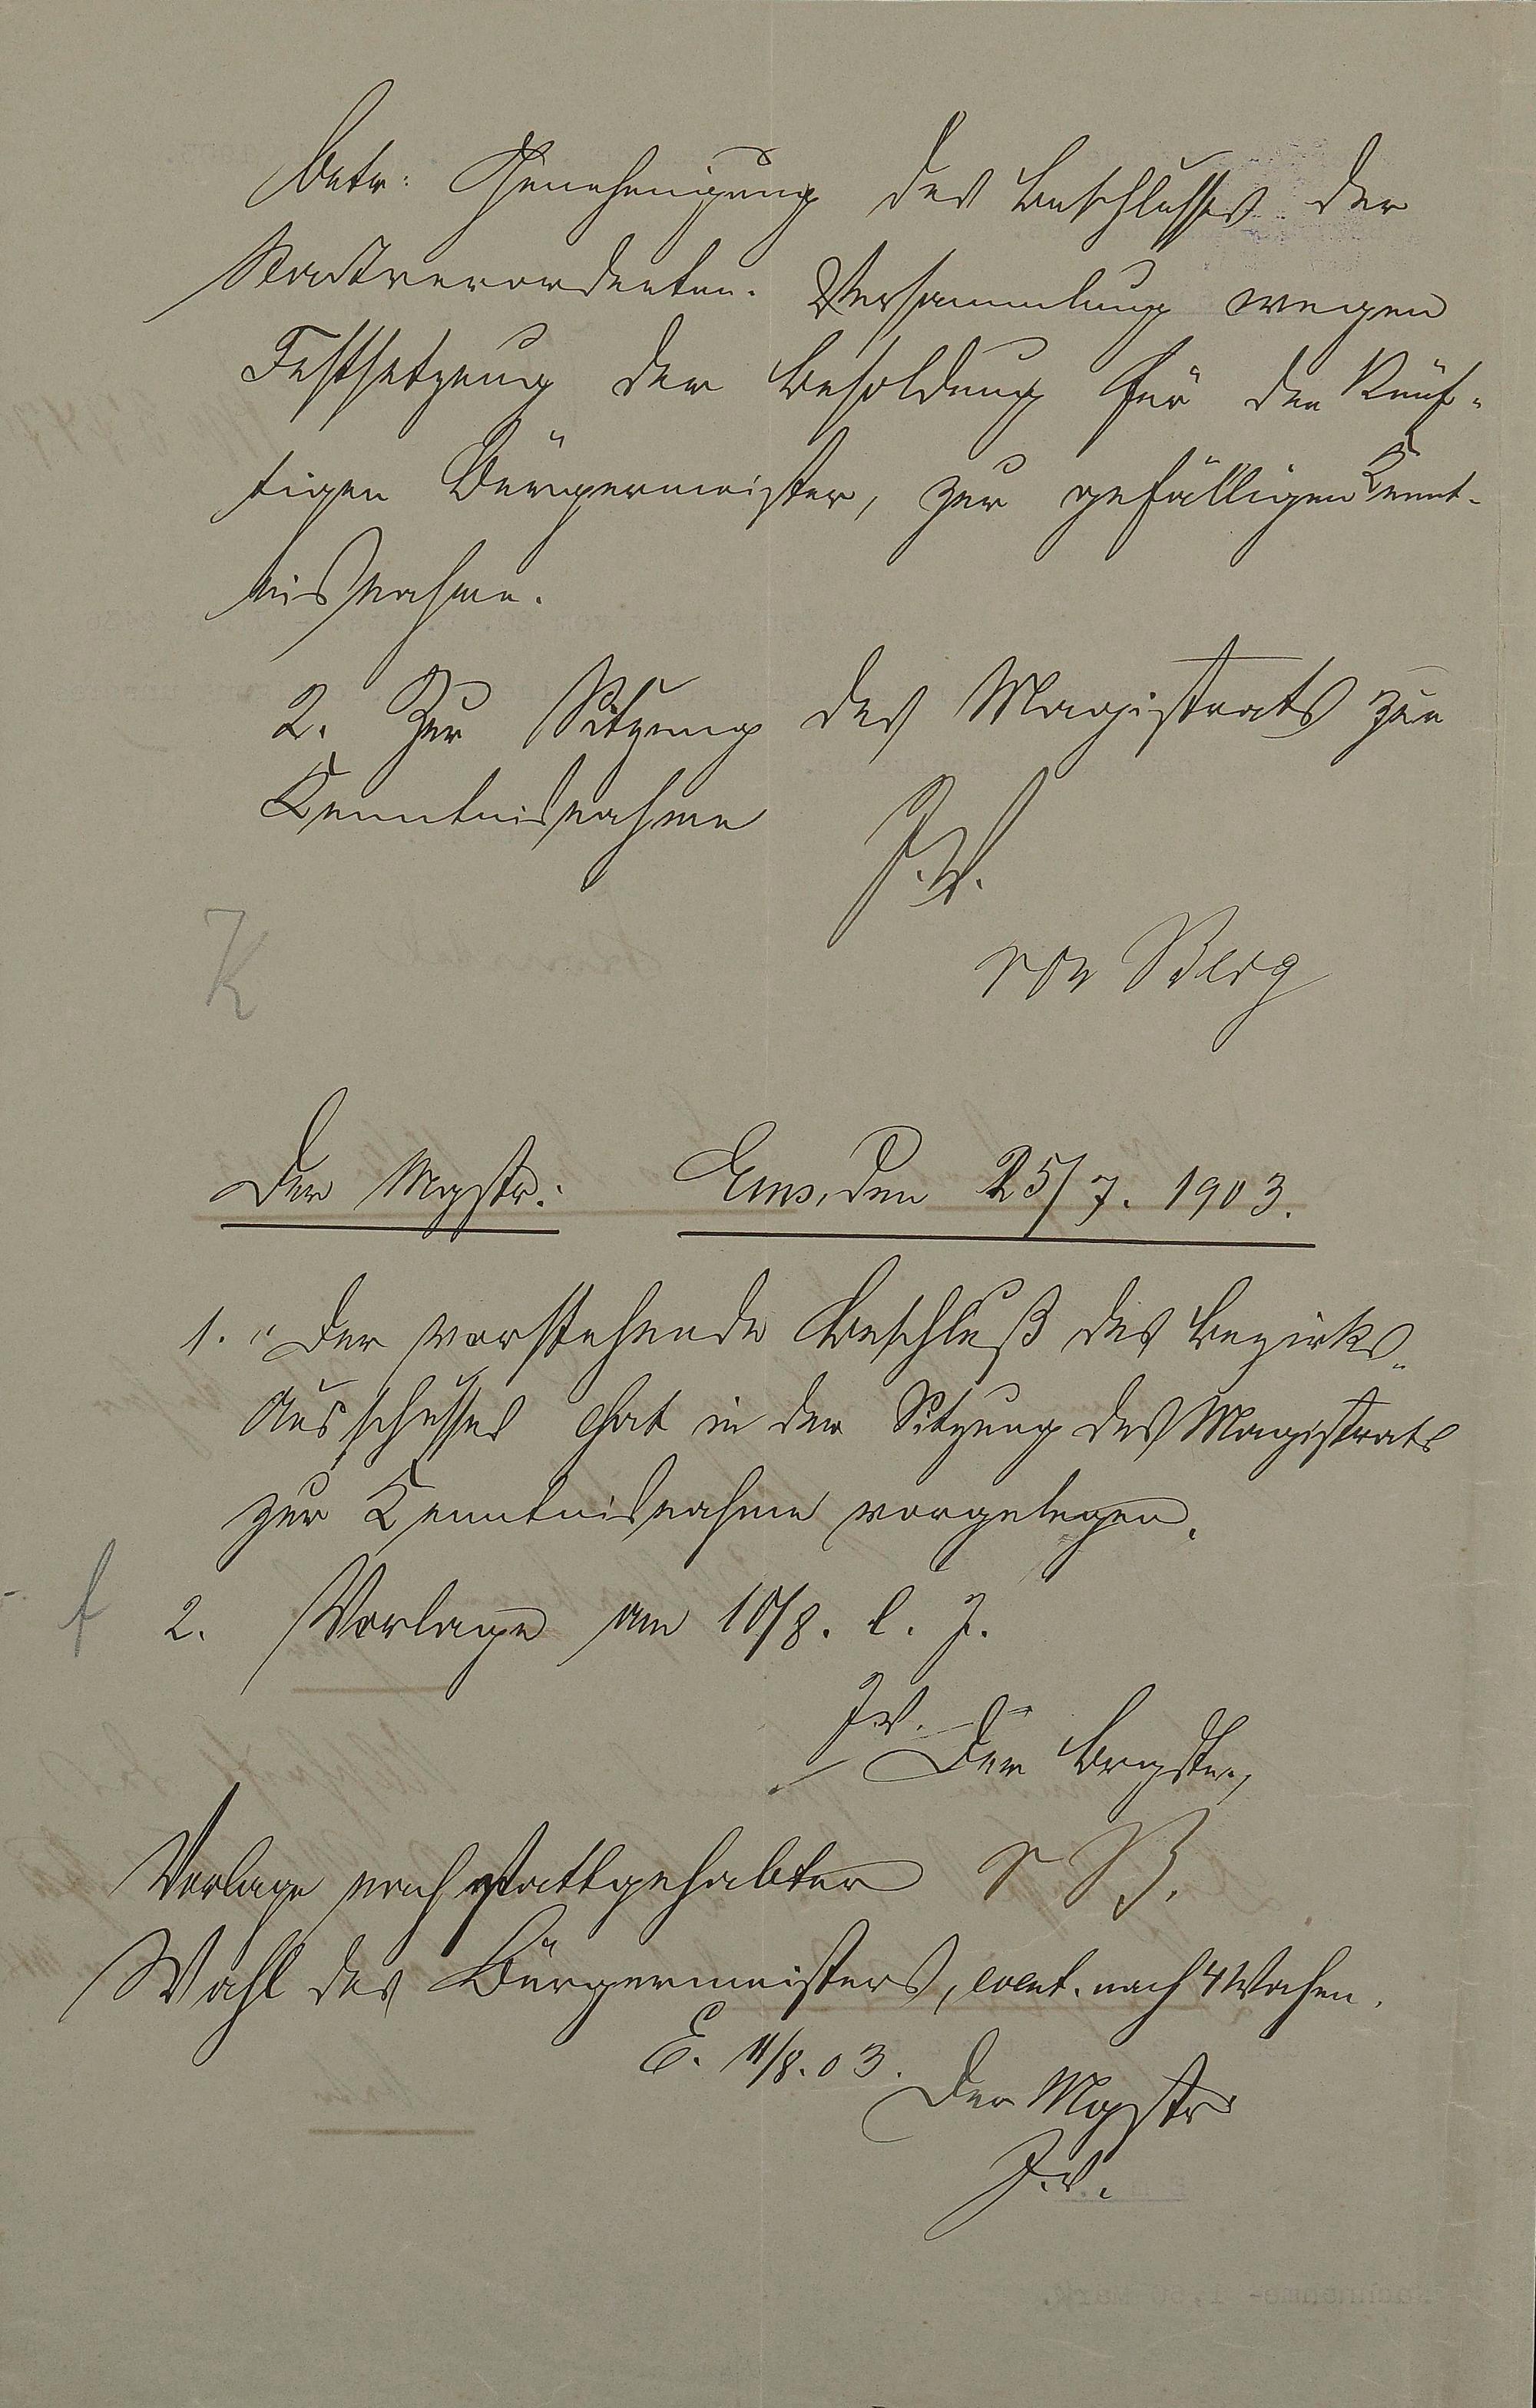 betr: Genehmigung des Beschlusses der
Stadtverordneten-Versammlung wegen
Festsetzung der Besoldung für den künf-
tigen Bürgermeister, zur gefälligen Kennt-
nisnahme.
2. Zur Sitzung des Magistrats zur
Kenntnisnahme
J.V.
von Berg
K
Der Mgstr: Ems, den 25/7. 1903.
1. Der vorstehende Beschluß des Bezirks-
Ausschusses hat in der Sitzung des Magistrats
zur Kenntnisnahme vorgelegen.
f 2. Vorlage am 10/8. l. J.
J.V.
Der Brgstr.,
v B.
Vorlage nach stattgehabter
Wahl des Bürgermeisters, event. nach 4 Wochen.
E. 11/8.03.
Der Mgstr
J.V.